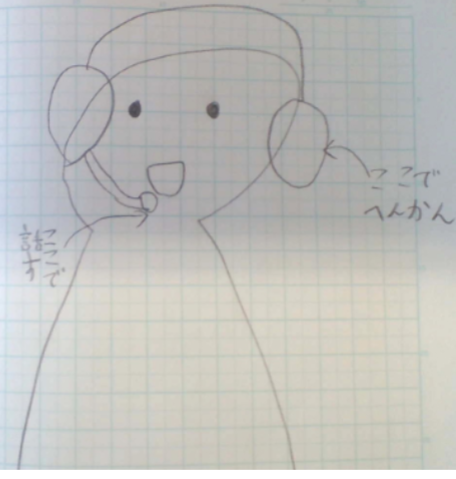 ここで
へんかん
ここで
話す